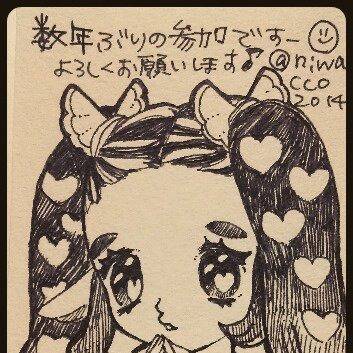 数年ぶりの参加ですー☺
よろしくお願いします♪ @niwa
cco
2014